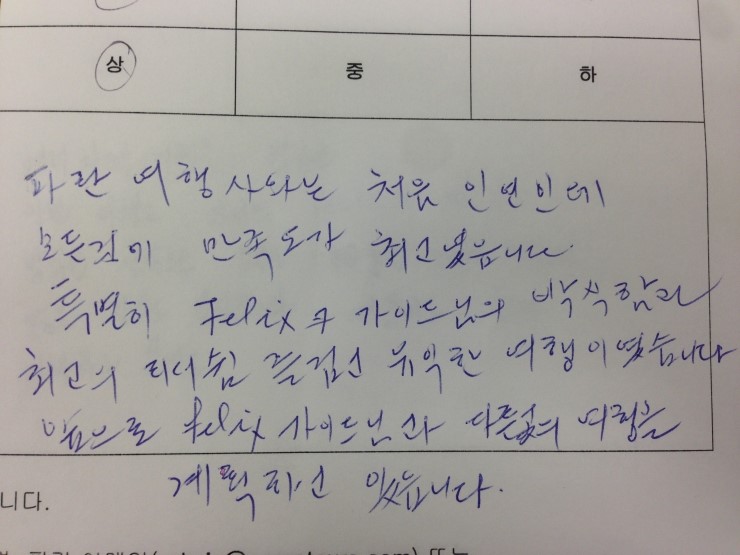 상 중 하
파란 여행사와는 처음 인연인데
모든것이 만족도가 최고였습니다.
특별히 Felix 가이드님의 박식함과
최고의 매너 즐겁고 유익한 여행이였습니다
앞으로 Felix 가이드님과 다른 여행을
계획하고 있습니다.
니다.